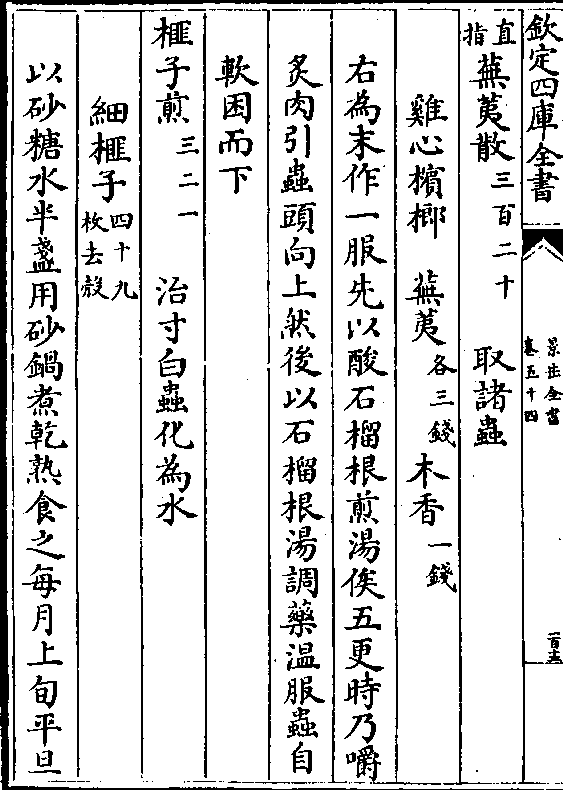 欽定四庫全書
景岳全書
卷五十四
直指蕪荑散三百二十 取諸蟲
雞心檳榔 蕪荑各三錢 木香一錢
右為末作一服先以酸石榴根煎湯俟五更時乃嚼
炙肉引蟲頭向上然後以石榴根湯調藥温服蟲自
軟困而下
榧子煎三二一 治寸白蟲化為水
細榧子四十九枚去殼
以砂糖水半盞用砂鍋煮乾熟食之每月上旬平旦